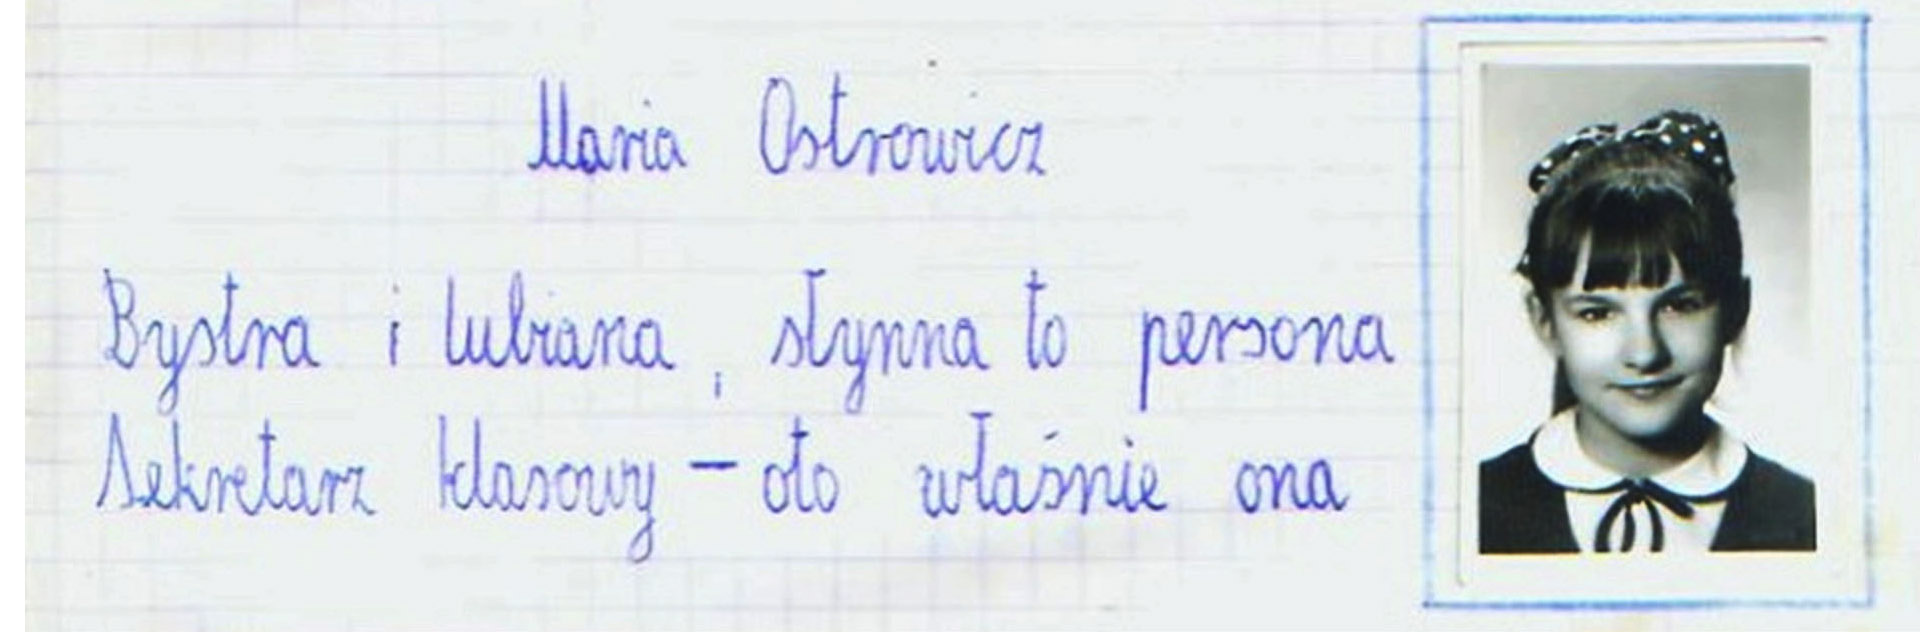 Maria Ostrowicz
Bystra i lubiana, słynna to persona
Sekretarz klasowy – oto właśnie ona